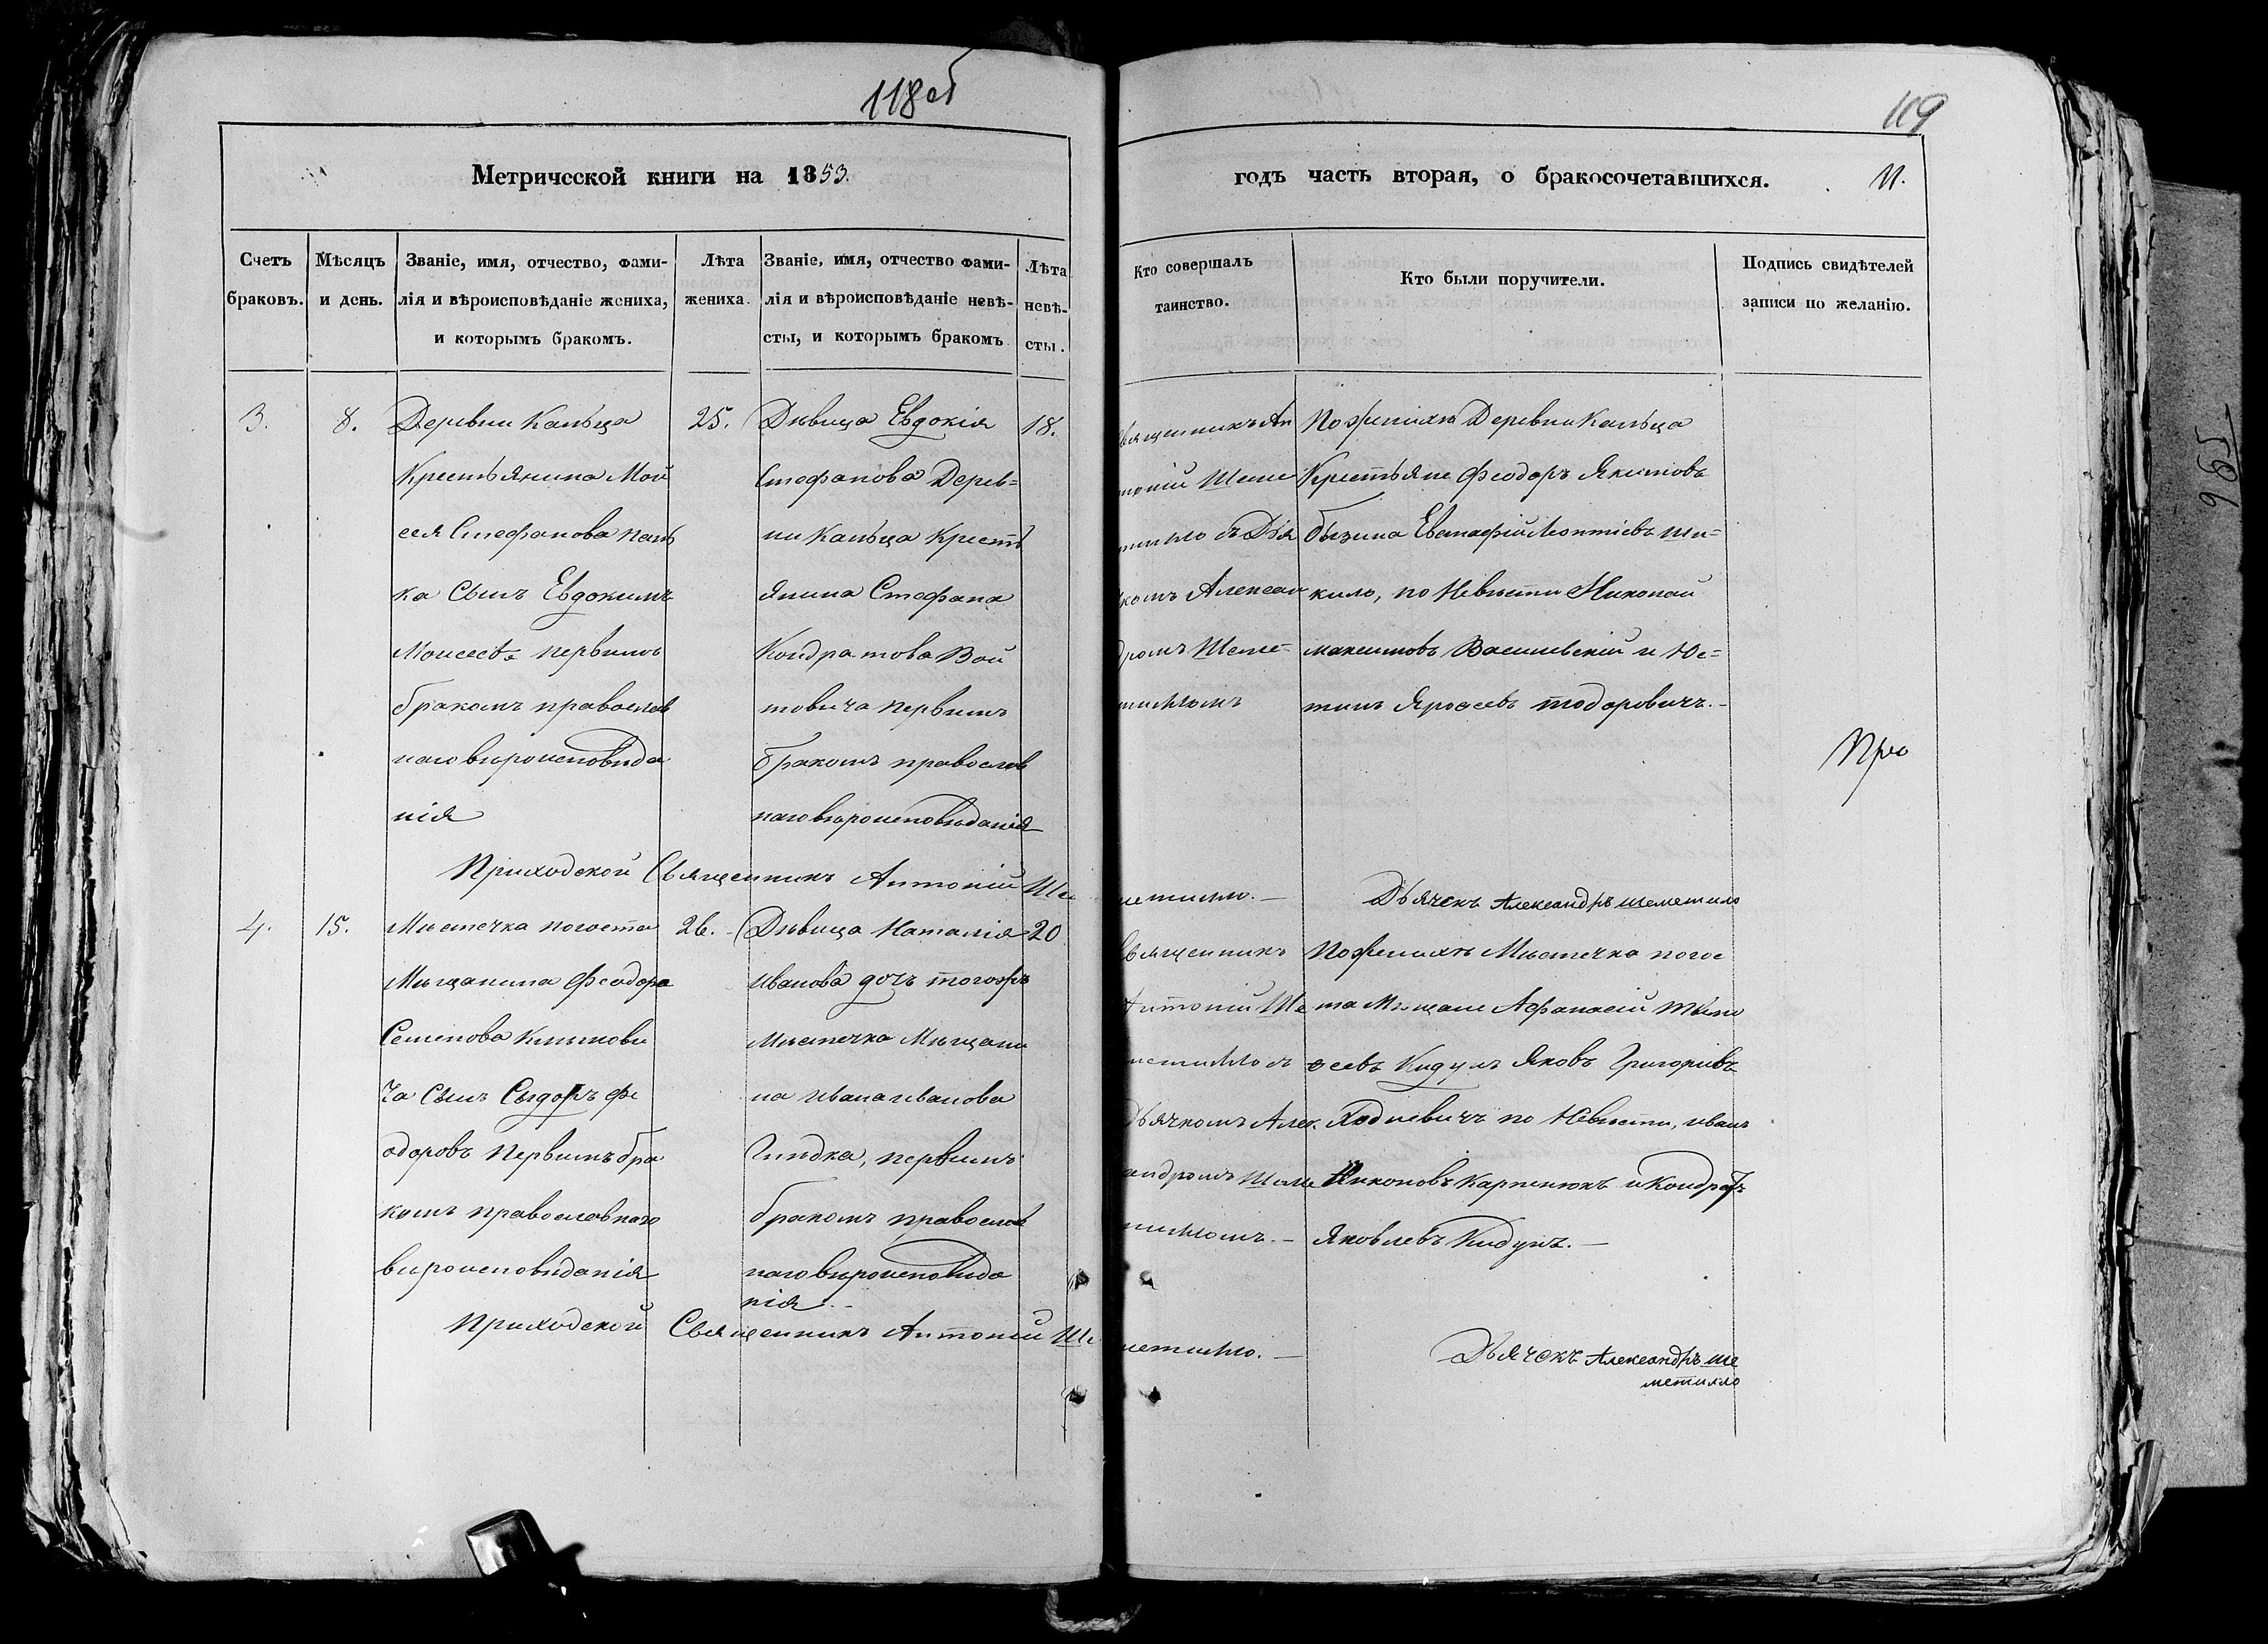 118 об
119
Метрической книги на 1853.
годъ часть вторая, о бракосочетавшихся.
11.
Счетъ браковъ.
Мѣсяцъ и день.
Званіе, имя, отчество, фами-
лія и вѣроисповѣданіе жениха,
и которымъ бракомъ.
Лѣта жениха.
Званіе, имя, отчество фами-
лія и вѣроисповѣданіе невѣ-
сты, и которымъ бракомъ
Лѣта невѣ-
сты.
Кто совершалъ
таинство.
Кто были поручители.
Подпись свидѣтелей
записи по желанію.
3.
8.
Деревни Кальца
Крестьянина Мой
сея Стефанова
ка Сынъ Евдокимъ
Моисеевъ первымъ
бракомъ православ
наго вѣроисповѣда
нія
25.
Дѣвица Евдокія
Стефанова Дерев=
ни Кальца Крестъ
янина Стефана
Кондратова Вой
товича первымъ
бракомъ православ
наго вѣроисповѣданія
18.
Священникъ Ан
тоній Шеме
тилло съ Дья
комъ Алексан
дромъ Шеме=
тилломъ
По женихѣ Деревни Кальца
Крестьяне Феодоръ Якимовъ
Евстафій Леонтіевъ Ши=
кило, по Невѣсти Николай
Максимовъ Василевскій и Юс=
тинъ Тодоровичъ.-
Про
Приходской Священникъ Антоній Ше
метилло.—
Дьячекъ Александръ Шеметило
4.
15.
Мѣстечка погоста
Мѣщанина Феодора
Семенова Климови
ча Сынъ Сыдоръ Фе
одоровъ первымъ бра
комъ православнаго
вѣроисповѣданія
26.
Дѣвица Наталія
Иванова дочъ тогожъ
Мѣстечка Мѣщани
на Ивана Иванова
Гиндка, первымъ
бракомъ православ
наго вѣроисповѣда
нія.-
20
Священникъ
Антоній Ше
метилло съ
Дьячкомъ Алек.
андромъ Шеме
тилломъ.—
По женихѣ Мѣстечка погос
та Мѣщане Афанасій
Кидунъ Яковъ Григоріевъ
по Невѣсти, Иванъ
Никоновъ Карпенюкъ и Кондратъ
Яковлевъ Кидунъ.—
Приходской Священникъ Антоній Ше
метилло.—
Дьячекъ Александръ Ше
метилло
965